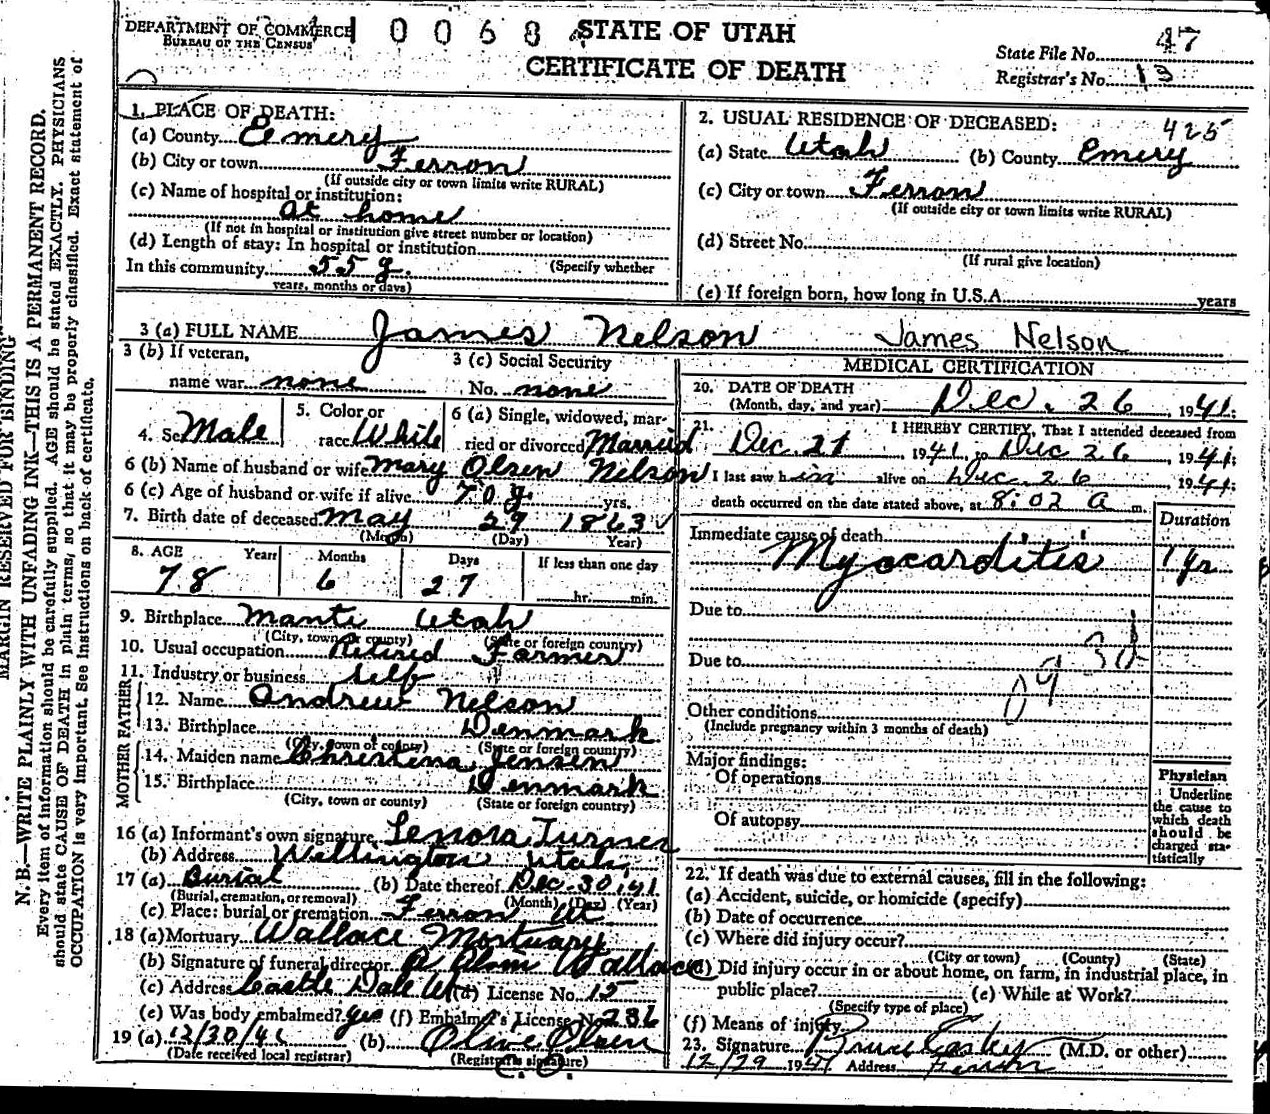 DEPARTMENT OF COMMERCE
BUREAU OF THE CENSUS
1 0 0 6 8
STATE OF UTAH
CERTIFICATE OF DEATH
State File No. 47
Registrar's No. 13
MARGIN RESERVED FOR BINDING
N. B.—WRITE PLAINLY WITH UNFADING INK—THIS IS A PERMANENT RECORD.
Every item of information should be carefully supplied. AGE should be stated EXACTLY. PHYSICIANS
should state CAUSE OF DEATH in plain terms, so that it may be properly classified. Exact statement of
OCCUPATION is very important. See instructions on back of certificate.
1. PLACE OF DEATH:
(a) County Emery
(b) City or town Ferron
(If outside city or town limits write RURAL)
(c) Name of hospital or institution:
at home
(If not in hospital or institution give street number or location)
(d) Length of stay: In hospital or institution
In this community 55 y. (Specify whether
years, months or days)
2. USUAL RESIDENCE OF DECEASED: 425
(a) State Utah (b) County Emery
(c) City or town Ferron
(If outside city or town limits write RURAL)
(d) Street No.
(If rural give location)
(e) If foreign born, how long in U.S.A. years
3 (a) FULL NAME James Nelson James Nelson
3 (b) If veteran,
name war none
3 (c) Social Security
No. none
4. Sex Male
5. Color or
race White
6 (a) Single, widowed, mar-
ried or divorced Married
6 (b) Name of husband or wife Mary Olsen Nelson
6 (c) Age of husband or wife if alive 70 y. yrs.
7. Birth date of deceased May 29 1863
(Month) (Day) Year)
8. AGE Years Months Days If less than one day
78 6 27 hr. min.
9. Birthplace Manti Utah
(City, town or county) (State or foreign country)
10. Usual occupation Retired Farmer
11. Industry or business Self
FATHER
12. Name Andrew Nelson
13. Birthplace Denmark
(City, town or county) (State or foreign country)
MOTHER
14. Maiden name Christena Jensen
15. Birthplace Denmark
(City, town or county) (State or foreign country)
16 (a) Informant's own signature Lenora Turner
(b) Address Wellington Utah
17 (a) Burial (b) Date thereof Dec. 30, 41
(Burial, cremation, or removal) (Month) (Day) (Year)
(c) Place: burial or cremation Ferron Ut
18 (a) Mortuary Wallace Mortuary
(b) Signature of funeral director Wallace
(c) Address Castle Dale Ut (d) License No. 15
(e) Was body embalmed? yes (f) Embalmer's License No. 236
19 (a) 12/30/41 (b) Olive Olsen
(Date received local registrar) (Registrar's signature)
MEDICAL CERTIFICATION
20. DATE OF DEATH
(Month, day, and year) Dec. 26, 1941.
21. I HEREBY CERTIFY, That I attended deceased from
Dec. 21, 1941, to Dec 26, 1941;
I last saw him alive on Dec. 26, 1941;
death occurred on the date stated above, at 8:02 a m.
Duration
Immediate cause of death
Myocarditis 1 yr
Due to
Due to
Other conditions
(Include pregnancy within 3 months of death)
Major findings:
Of operations
Of autopsy
Physician
Underline
the cause to
which death
should be
charged sta-
tistically
22. If death was due to external causes, fill in the following:
(a) Accident, suicide, or homicide (specify)
(b) Date of occurrence
(c) Where did injury occur?
(City or town) (County) (State)
(d) Did injury occur in or about home, on farm, in industrial place, in
public place? (e) While at Work?
(Specify type of place)
(f) Means of injury
23. Signature Bruce (M.D. or other)
12/29 1941 Address Ferron